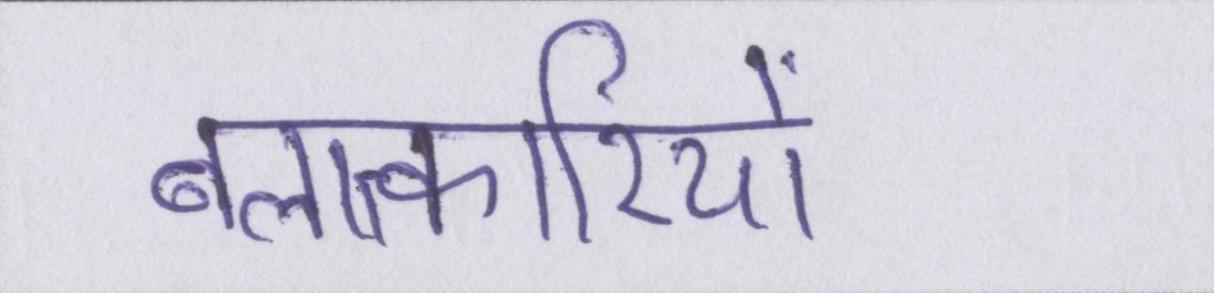 बलात्कारियों